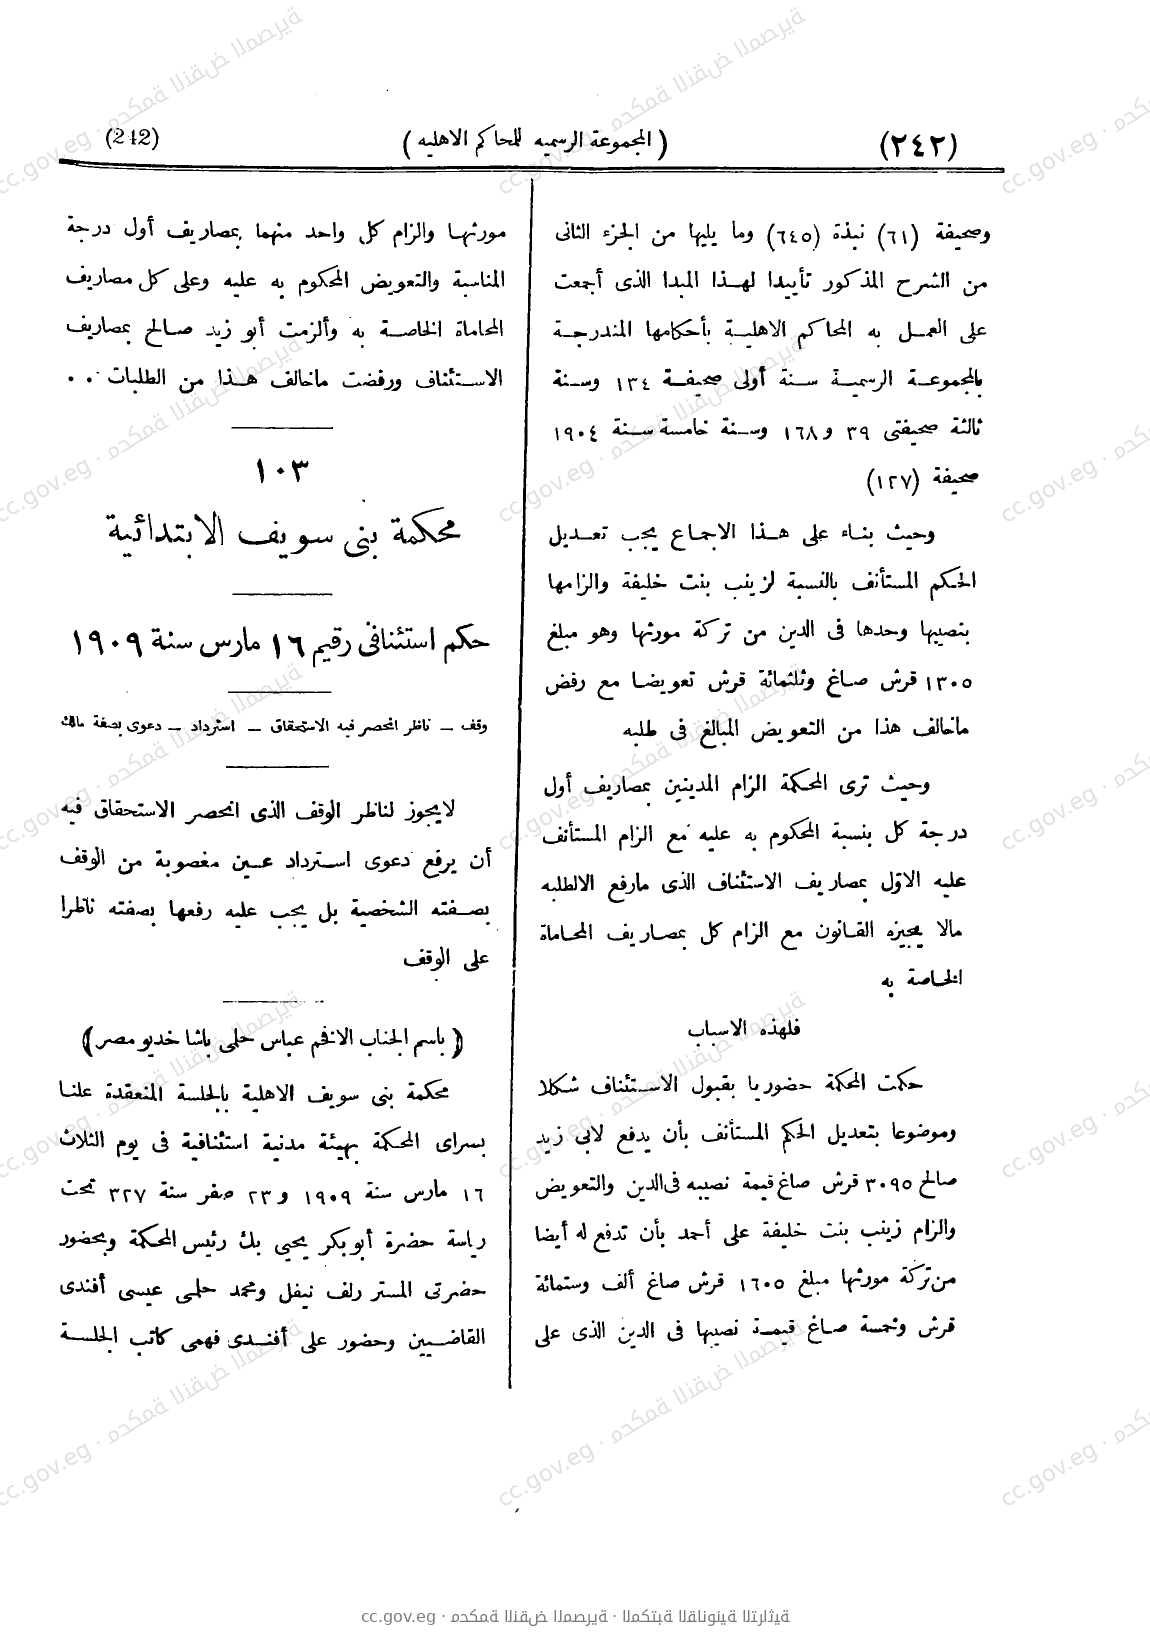 (٢٤٢)
( المجموعة الرسميه للمحاكم الاهليه )
(242)
وصحيفة (٦١) نبذة (٦٤٥) وما يليها من الجزء الثانى
من الشرح المذكور تأييدا لهذا المبدا الذى أجمعت
على العمل به المحاكم الاهلية بأحكامها المندرجة
بالمجموعة الرسمية سنة أولى صحيفة ١٣٤ وسنة
ثالثة صحيفتى ٣٩ و١٦٨ وسنة خامسة سنة ١٩٠٤
صحيفة (١٢٧)
وحيث بناء على هذا الاجماع يجب تعديل
الحكم المستأنف بالنسبة لزينب بنت خليفة والزامها
بنصيبها وحدها فى الدين من تركة مورثها وهو مبلغ
١٣٠٥ قرش صاغ وثلثمائة قرش تعويضا مع رفض
ماخالف هذا من التعويض المبالغ فى طلبه
وحيث ترى المحكمة الزام المدينين بمصاريف أول
درجة كل بنسبة المحكوم به عليه مع الزام المستأنف
عليه الاول بمصاريف الاستئناف الذى مارفع الالطلبه
مالا يجيزه القانون مع الزام كل بمصاريف المحاماة
الخاصة به
فلهذه الاسباب
حكمت المحكمة حضوريا بقبول الاستئناف شكلا
وموضوعا بتعديل الحكم المستأنف بأن يدفع لابى زيد
صالح ٣٠٩٥ قرش صاغ قيمة نصيبه فى الدين والتعويض
والزام زينب بنت خليفة على أحمد بأن تدفع له أيضا
من تركة مورثها مبلغ ١٦٠٥ قرش صاغ ألف وستمائة
قرش وخمسة صاغ قيمة نصيبها فى الدين الذى على
مورثها والزام كل واحد منهما بمصاريف أول درجة
المناسبة والتعويض المحكوم به عليه وعلى كل مصاريف
المحاماة الخاصة به وألزمت أبو زيد صالح بمصاريف
الاستئناف ورفضت ماخالف هذا من الطلبات . .
١٠٣
محكمة بنى سويف الابتدائية
حكم استئنافى رقيم ١٦ مارس سنة ١٩٠٩
وقف – ناظر انحصر فيه الاستحقاق – استرداد – دعوى بصفة مالك
لايجوز لناظر الوقف الذى انحصر الاستحقاق فيه
أن يرفع دعوى استرداد عين مغصوبة من الوقف
بصفته الشخصية بل يجب عليه رفعها بصفته ناظرا
على الوقف
( باسم الجناب الافخم عباس حلمى باشا خديو مصر )
محكمة بنى سويف الاهلية بالجلسة المنعقدة علنا
بسراى المحكمة بهيئة مدنية استئنافية فى يوم الثلاث
١٦ مارس سنة ١٩٠٩ و٢٣ صفر سنة ٣٢٧ تحت
رياسة حضرة أبوبكر يحيى بك رئيس المحكمة وبحضور
حضرتى المستر رلف نيفل ومحمد حلمى عيسى أفندى
القاضيين وحضور على أفندى فهمى كاتب الجلسة
cc.gov.eg · محكمة النقض المصرية · المكتبة القانونية التراثية